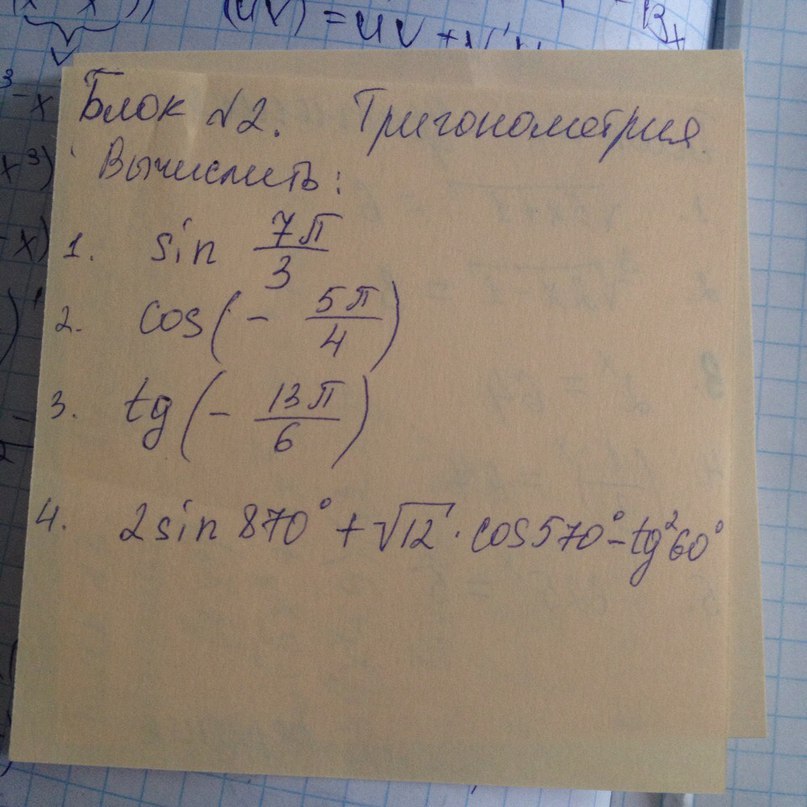 (uv)' = u'v + v'u
Блок №2. Тригонометрия.
Вычислить:
1. sin 7π/3
2. cos(- 5π/4)
3. tg(- 13π/6)
4. 2sin 870° + √12 · cos 570° - tg²60°